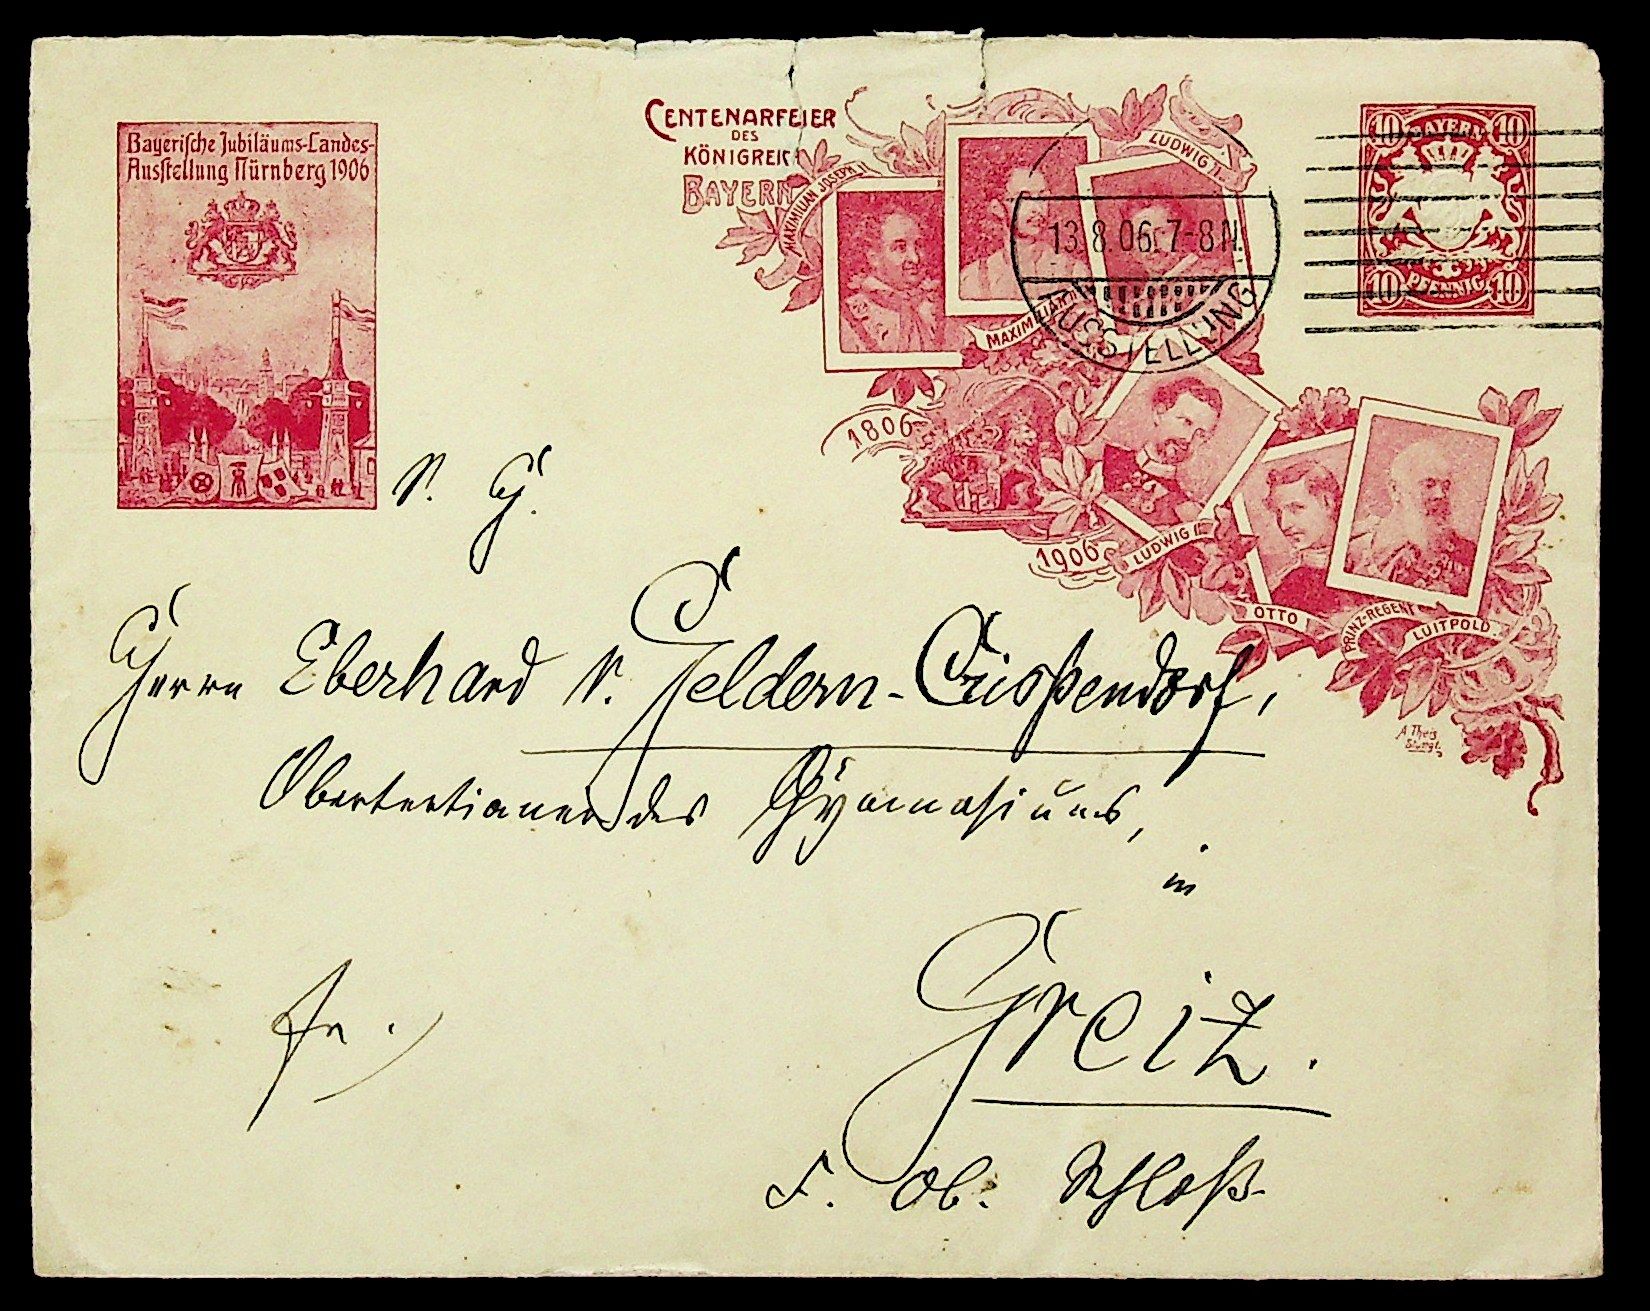 Bayerische Jubiläums-Landes-
Ausstellung Nürnberg 1906
CENTENARFEIER
DES
KÖNIGREICH
BAYERN
MAXIMILIAN JOSEPH I
LUDWIG I.
MAXIMILIAN II
1806
1906
LUDWIG II
OTTO I
PRINZ-REGENT
LUITPOLD
A Theis
10 BAYERN 10
10 PFENNIG 10
13.8.06. 7-8 N.
AUSSTELLUNG
S. H.
Herrn Eberhard v. Geldern-Crispendorf,
Obertertianer des Gymnasiums,
in
Greiz.
fr.
F. Ob. Schloß